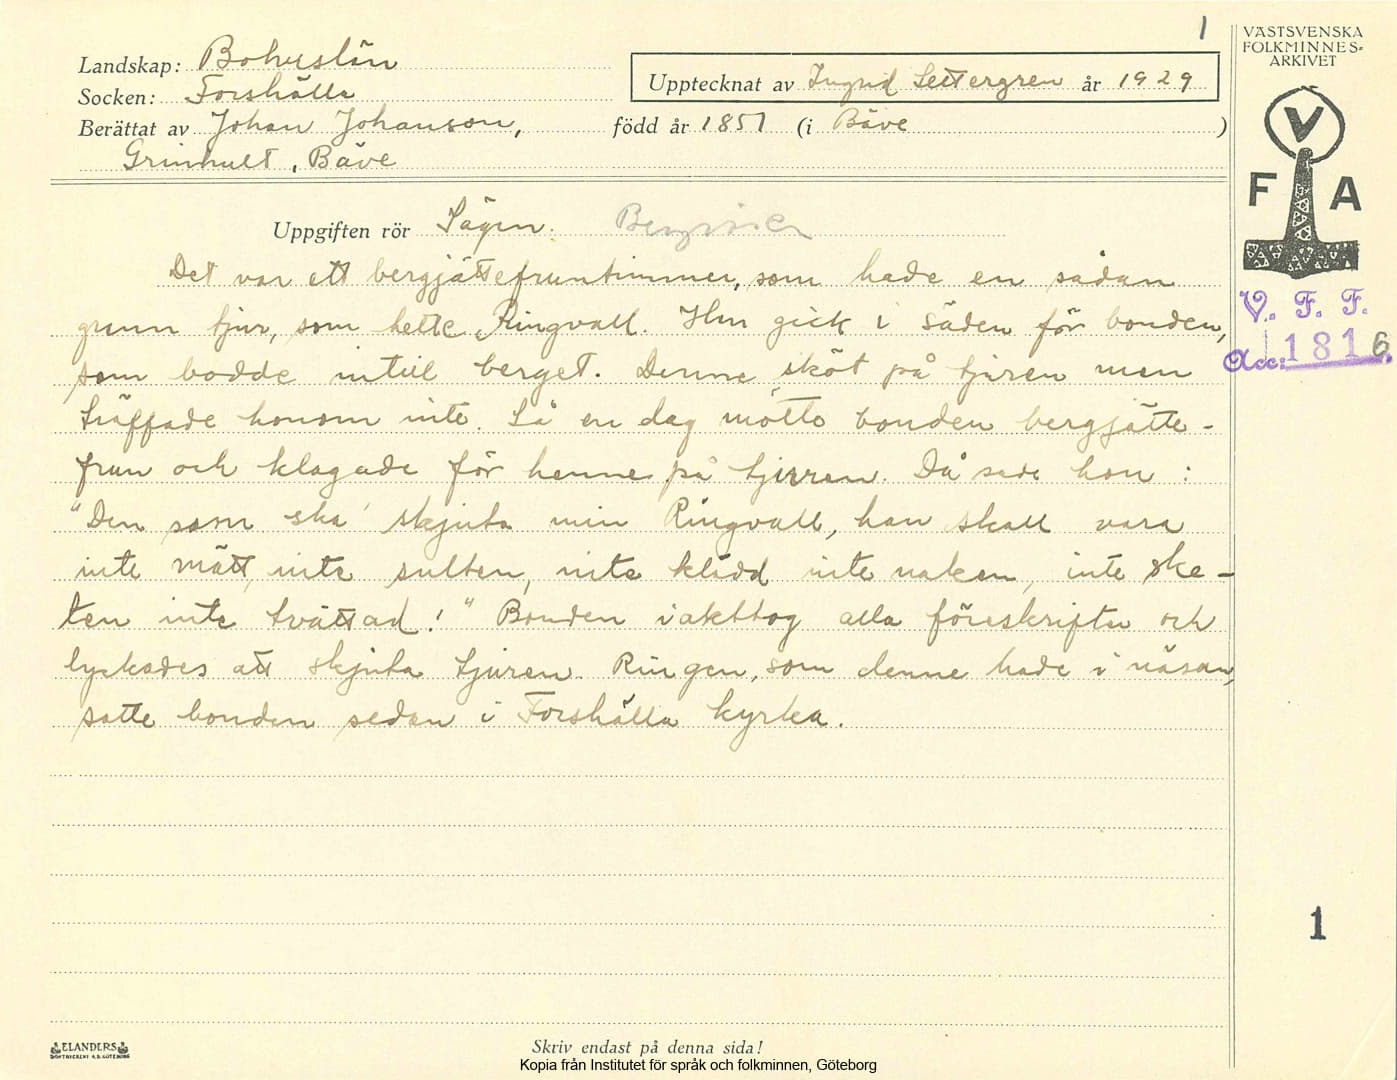 1
VÄSTSVENSKA
FOLKMINNES-
ARKIVET
Landskap: Bohuslän
Upptecknat av Ingrid Settergren år 1929
Socken: Forshälla
Berättat av Johan Johanson, född år 1857 (i Bäve )
Grinhult, Bäve
V
F A
Uppgiften rör Sägen.
Det var ett bergjättefruntimmer, som hade en sådan
grann tjur, som hette Ringvall. Hon gick i säden för bonden,
som bodde intill berget. Denne sköt på tjuren men
träffade honom inte. Så en dag mötte bonden bergjätte-
frun och klagade för henne på tjuren. Då sade hon:
"Den som ska' skjuta min Ringvall, han skall vara
inte mätt, inte sulten, inte klädd inte naken, inte ske-
ten inte tvättad!" Bonden iakttog alla föreskrifter och
lyckades att skjuta tjuren. Ringen, som denne hade i näsan,
satte bonden sedan i Forshälla kyrka.
V. F. F.
Acc: 1816.
1
ELANDERS
BOKTRYCKERI A.B. GÖTEBORG
Skriv endast på denna sida!
Kopia från Institutet för språk och folkminnen, Göteborg